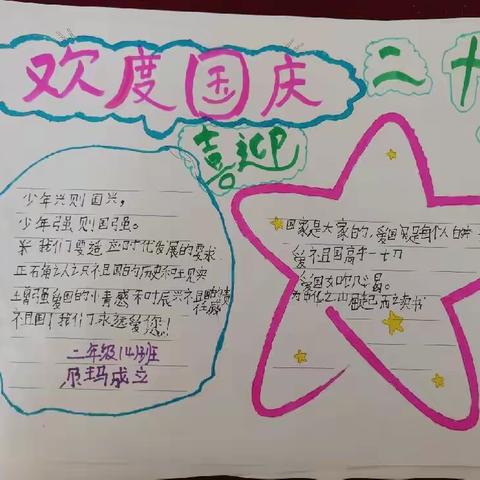 欢度国庆
喜迎
二十
少年兴则国兴,
少年强则国强。
我们要适应时代发展的要求
正石角认人只祖国的历史和现实
爱国的小青感和时辰兴祖国的
祖国!我们永远爱您!
二年级(4)班
玛成立
国家是大家的,爱国是每个人的
爱祖国高于一切
爱国如
为中华之 起而读书